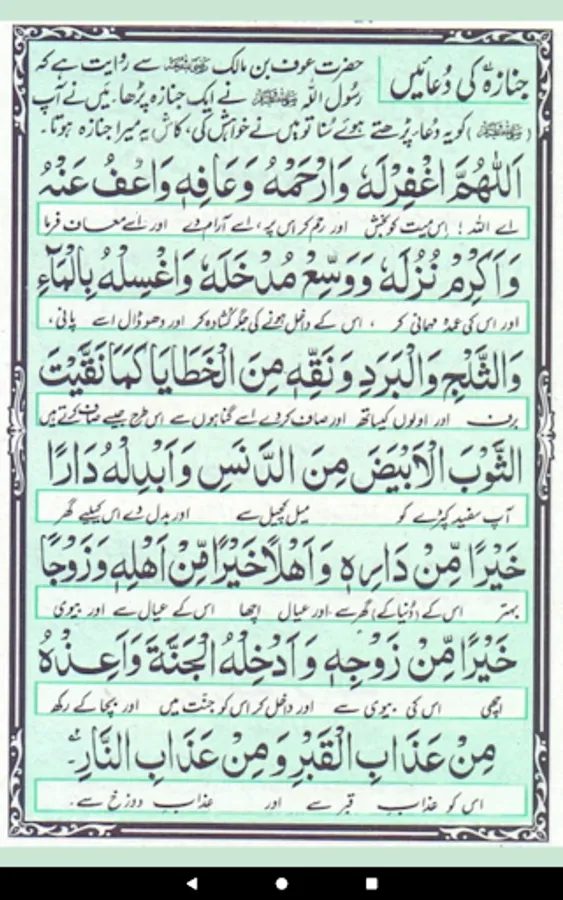 جنازہ کی دُعائیں
حضرت عوف بن مالک رضی اللہ عنہ سے روایت ہے کہ
رسول اللہ ﷺ نے ایک جنازہ پڑھا۔ میں نے آپ
(ﷺ) کو یہ دُعا پڑھتے ہوئے سُنا تو میں نے خواہش کی، کاش یہ میرا جنازہ ہوتا۔
اَللّٰهُمَّ اغْفِرْ لَهٗ وَارْحَمْهُ وَعَافِهٖ وَاعْفُ عَنْهُ
اے اللہ ! اس میت کو بخش اور رحم کر اس پر، اسے آرام دے اور اسے معاف فرما
وَاَكْرِمْ نُزُلَهٗ وَوَسِّعْ مُدْخَلَهٗ وَاغْسِلْهُ بِالْمَآءِ
اور اس کی عمدہ مہمانی کر ، اس کے داخل ہونے کی جگہ کشادہ کر اور دھو ڈال اسے پانی،
وَالثَّلْجِ وَالْبَرَدِ وَنَقِّهٖ مِنَ الْخَطَايَا كَمَا نَقَّيْتَ
برف اور اولوں کیساتھ اور صاف کر دے اسے گناہوں سے اس طرح جیسے صاف کرتے ہیں
الثَّوْبَ الْاَبْيَضَ مِنَ الدَّنَسِ وَاَبْدِلْهُ دَارًا
آپ سفید کپڑے کو میل کچیل سے اور بدل دے اس کیلیے گھر
خَيْرًا مِّنْ دَارِهٖ وَاَهْلًا خَيْرًا مِّنْ اَهْلِهٖ وَزَوْجًا
بہتر اس کے (دُنیا کے) گھر سے اور عیال اچھا اس کے عیال سے اور بیوی
خَيْرًا مِّنْ زَوْجِهٖ وَاَدْخِلْهُ الْجَنَّةَ وَاَعِذْهُ
اچھی اس کی بیوی سے اور داخل کر اس کو جنّت میں اور بچا کے رکھ
مِنْ عَذَابِ الْقَبْرِ وَمِنْ عَذَابِ النَّارِ۔
اس کو عذاب قبر سے اور عذاب دوزخ سے۔